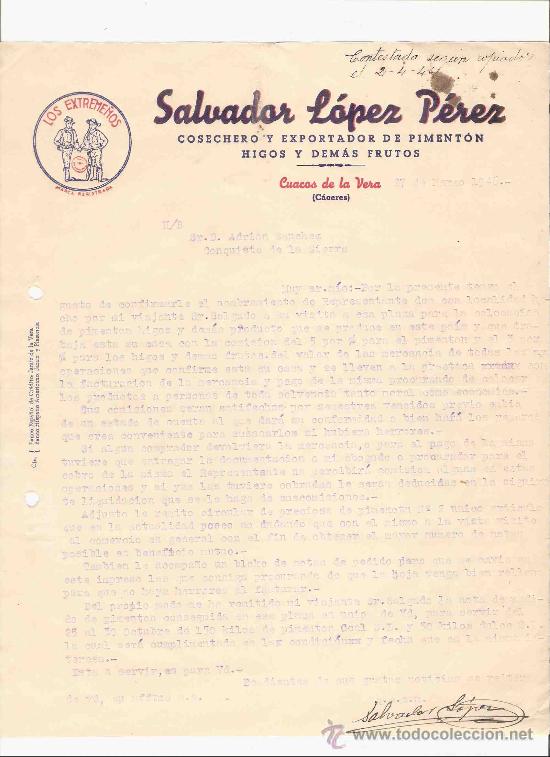 Contestado según copiador
el 2-4-46
LOS EXTREMEÑOS
MARCA REGISTRADA
Salvador López Pérez
COSECHERO Y EXPORTADOR DE PIMENTÓN
HIGOS Y DEMÁS FRUTOS
Cuacos de la Vera
(Cáceres)
27 de Marzo 1946.-
Sr. D. Adrián Sanchez
Conquista de la Sierra
Muy sr. mio:- Por la presente tengo el
gusto de confirmarle el nombramiento de Representante de esa localidad
cho por mi viajante Sr. Salgado a su visita a esa plaza para la colocación
de pimenton higos y demás producto que se produce en este país y que
baja esta su casa con la comision del 5 por % para el pimenton y el
% para los higos y demas frutas. del valor de las mercancia de todas las
operaciones que confirme esta su casa y se lleven a la practica
la facturacion de la mercancia y pago de la misma procurando de colocar
los productos a personas de toda solvencia tanto moral como economica.-
Sus comisiones seran satisfechas por semestres vencidos previo envio
de un estado de cuenta al que dará su conformidad o bien hará los reparos
que crea conveniente para subsanarlos si hubiera herrores.-
Si algun comprador devolviera la mercancia, o para el pago de la misma
tuviere que entregar la documentacion a mi abogado o procurador para el
cobro de la misma el Representante no percibirá comision alguna en estas
operaciones y si ya las tuviere cobradas le seran deducidas en la siguien
te liquidacion que se le haga de sus comisiones.-
Adjunto le remito circular de precios de pimenton Nº 2 unico
que en la actualidad poseo no dudando que con el mismo a la vista visite
al comercio en general con el fin de obtener el mayor numero de notas
posible en beneficio mutuo.-
Tambien le acompaño un bloke de notas de pedido para que me envie
este impreso las que consiga procurando de que la hoja venga bien rellena
para que no haya herrores al facturar.-
Del propio modo me ha remitido mi viajante Sr. Salgado la nota de
do de pimenton conseguida en esa plaza al unis. de Vd, para servir del
25 al 30 Octubre de 150 kilos de pimenton Ocal S.X. y 50 kilos dulce
la cual será cumplimentada en las condiciones y fecha que en la misma
teresa.-
Esta a servir, es para Vd.-
Pendientes de sus gratas noticias se reitera
de Vd, su affmo s.s.
Salvador López
www.todocoleccion.net